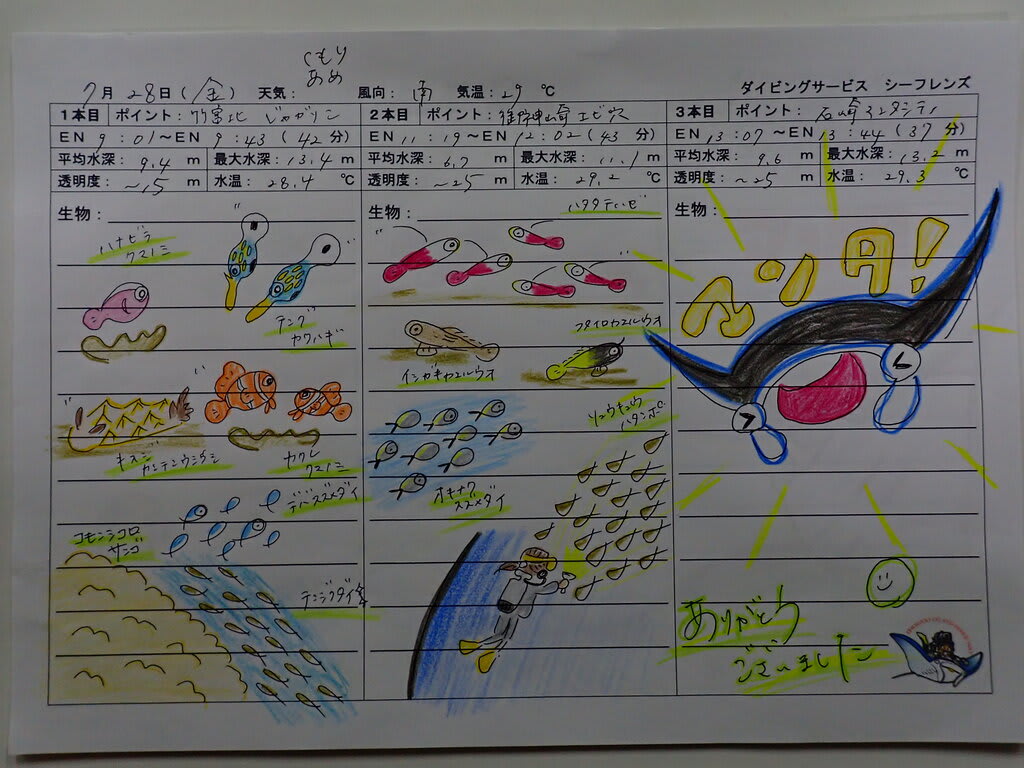 くもり
あめ
7月28日(金) 天気: 風向: 南 気温: 29 ℃
ダイビングサービス シーフレンズ
1本目 ポイント: 竹富北 じゃがりこ
EN 9:01～EN 9:43(42分)
平均水深: 9.4 m 最大水深: 13.4 m
透明度: ～15 m 水温: 28.4 ℃
生物:
ハナビラ
クマノミ
テング
カワハギ
キスジ
カンテンウミウシ
カクレ
クマノミ
デバスズメダイ
コモンシコロ
サンゴ
テンジクダイ
2本目 ポイント: エビ穴
EN 11:19～EN 12:02(43分)
平均水深: 6.7 m 最大水深: 11.1 m
透明度: ～25 m 水温: 29.2 ℃
生物:
ハタタテハゼ
フタイロカエルウオ
イシガキカエルウオ
リュウキュウ
ハタンポ
オキナワ
スズメダイ
3本目 ポイント: 石崎マンタシティ
EN 13:07～EN 13:44(37分)
平均水深: 9.6 m 最大水深: 13.2 m
透明度: ～25 m 水温: 29.3 ℃
生物:
マンタ!
ありがとう
ございました